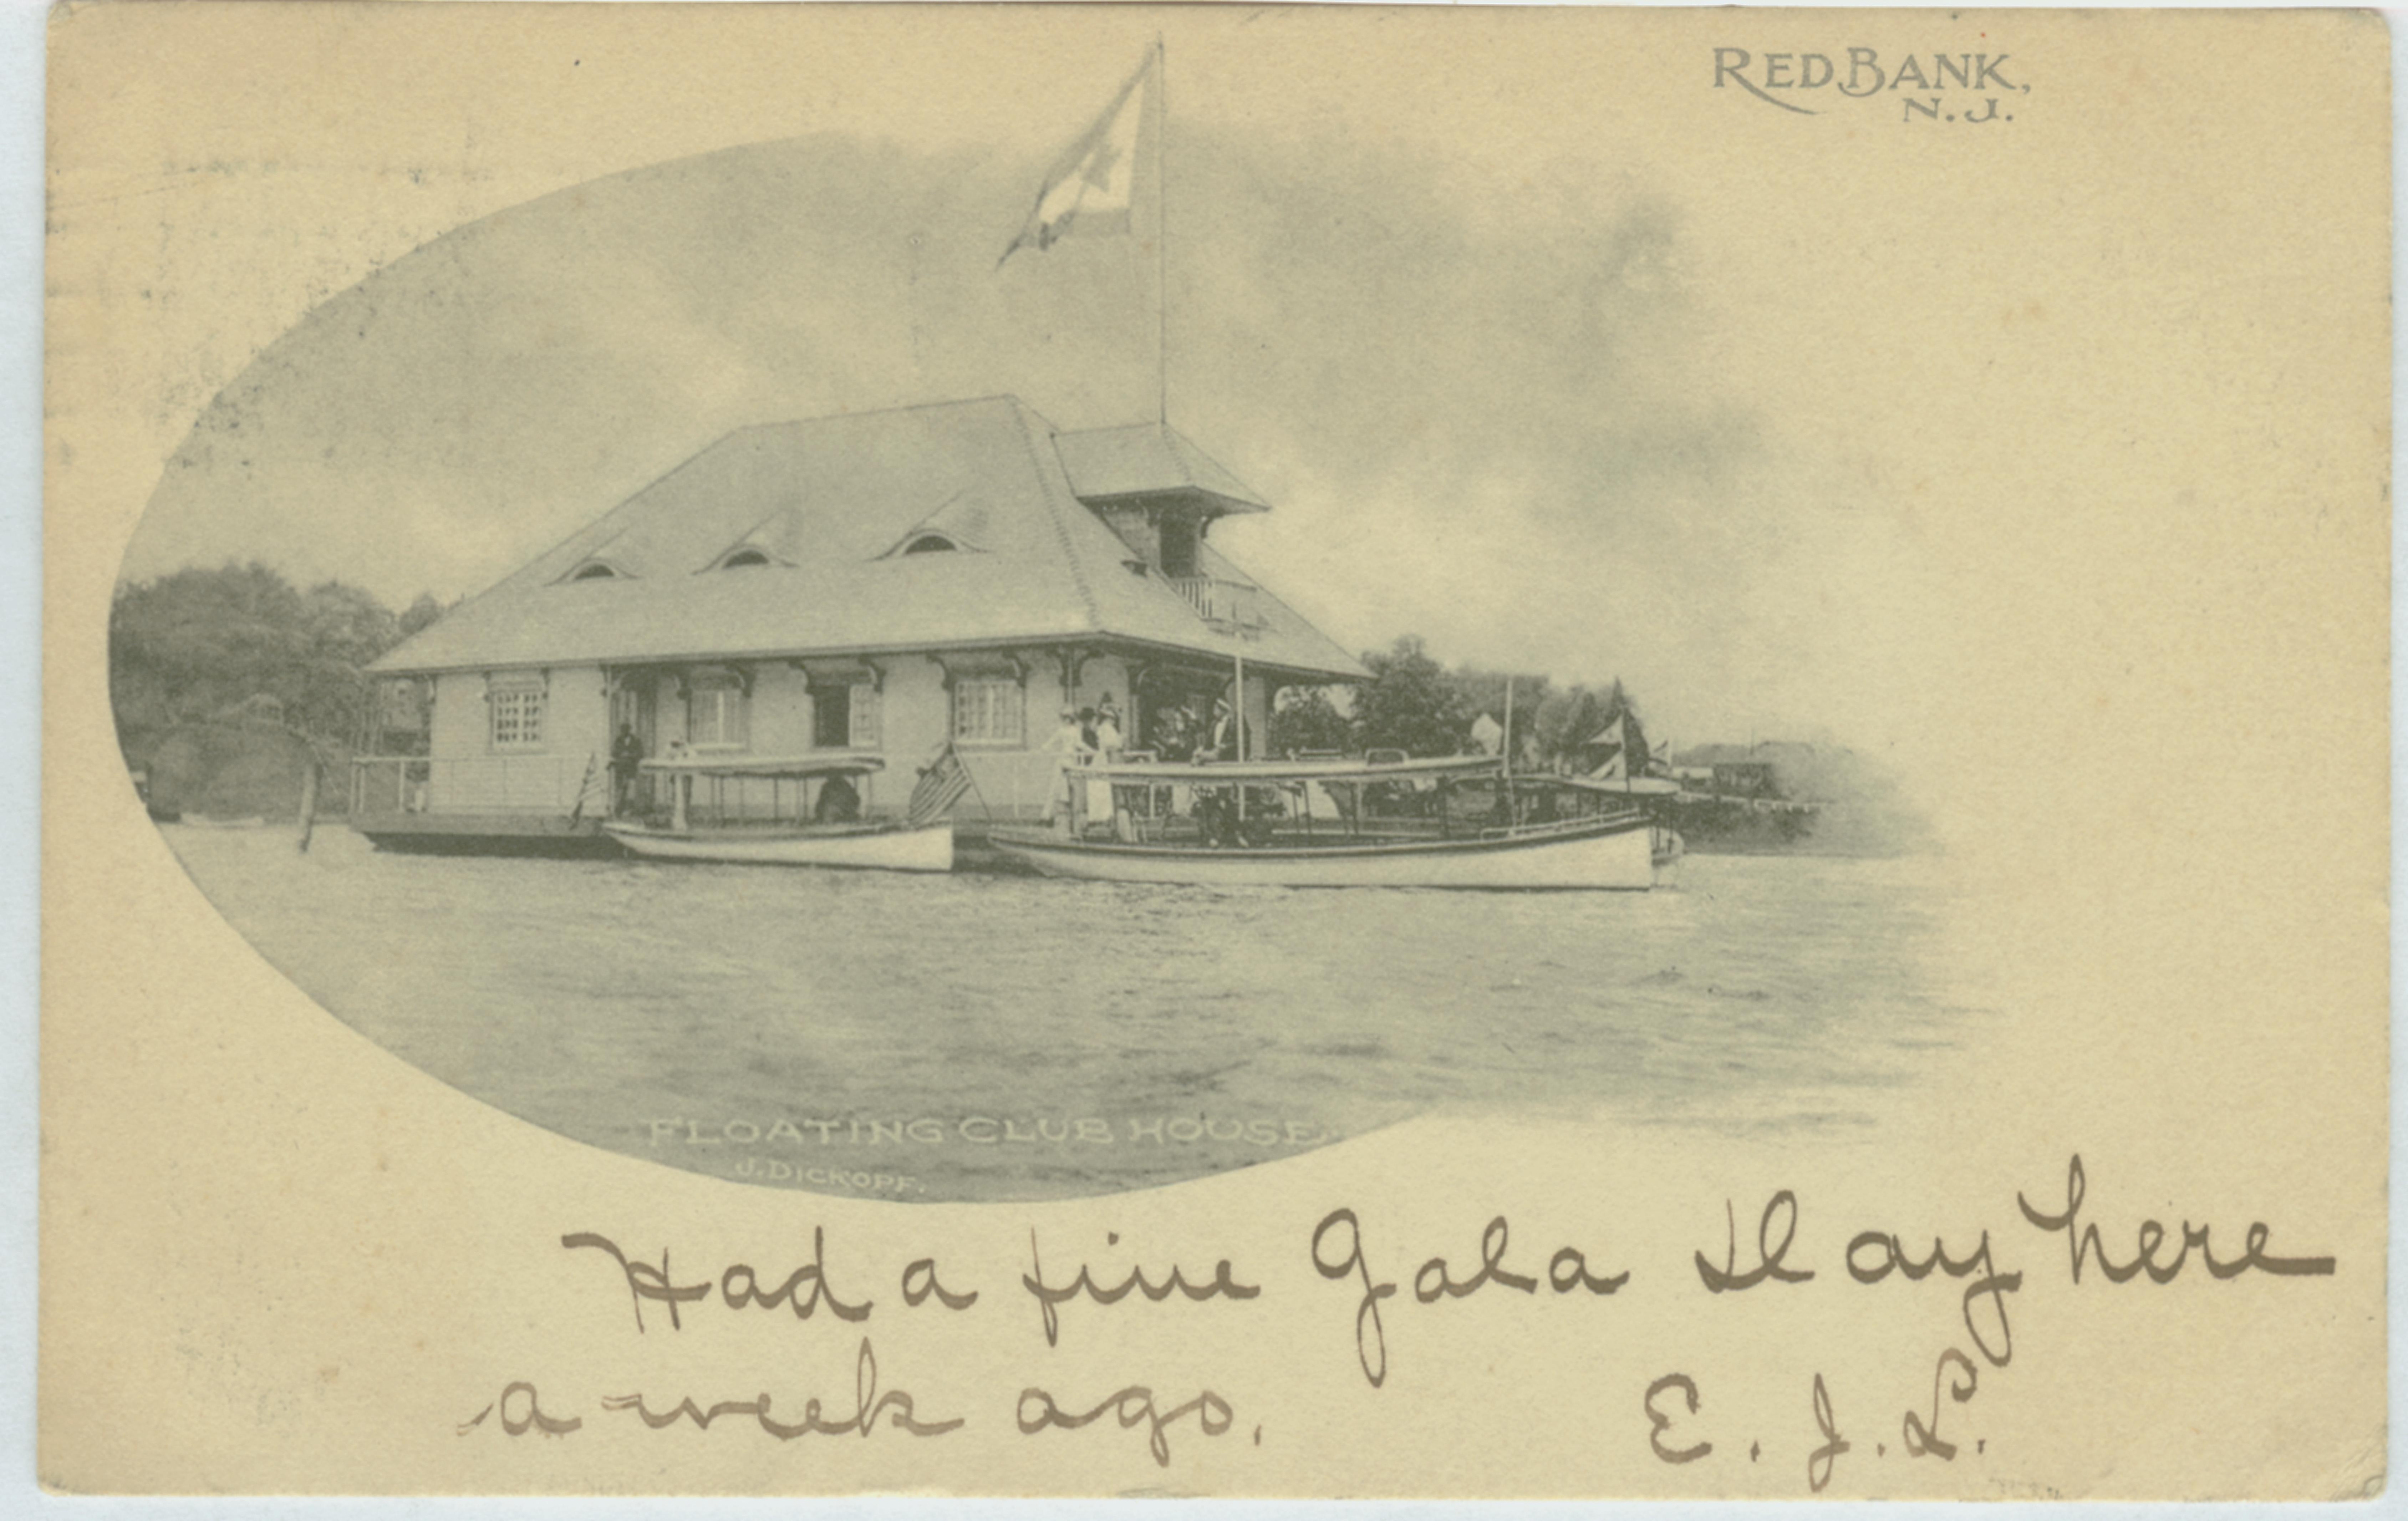 RED BANK,
N. J.
FLOATING CLUB HOUSE.
J. DICKOPF.
Had a fine Gala Day here
a week ago.
E. J. L.